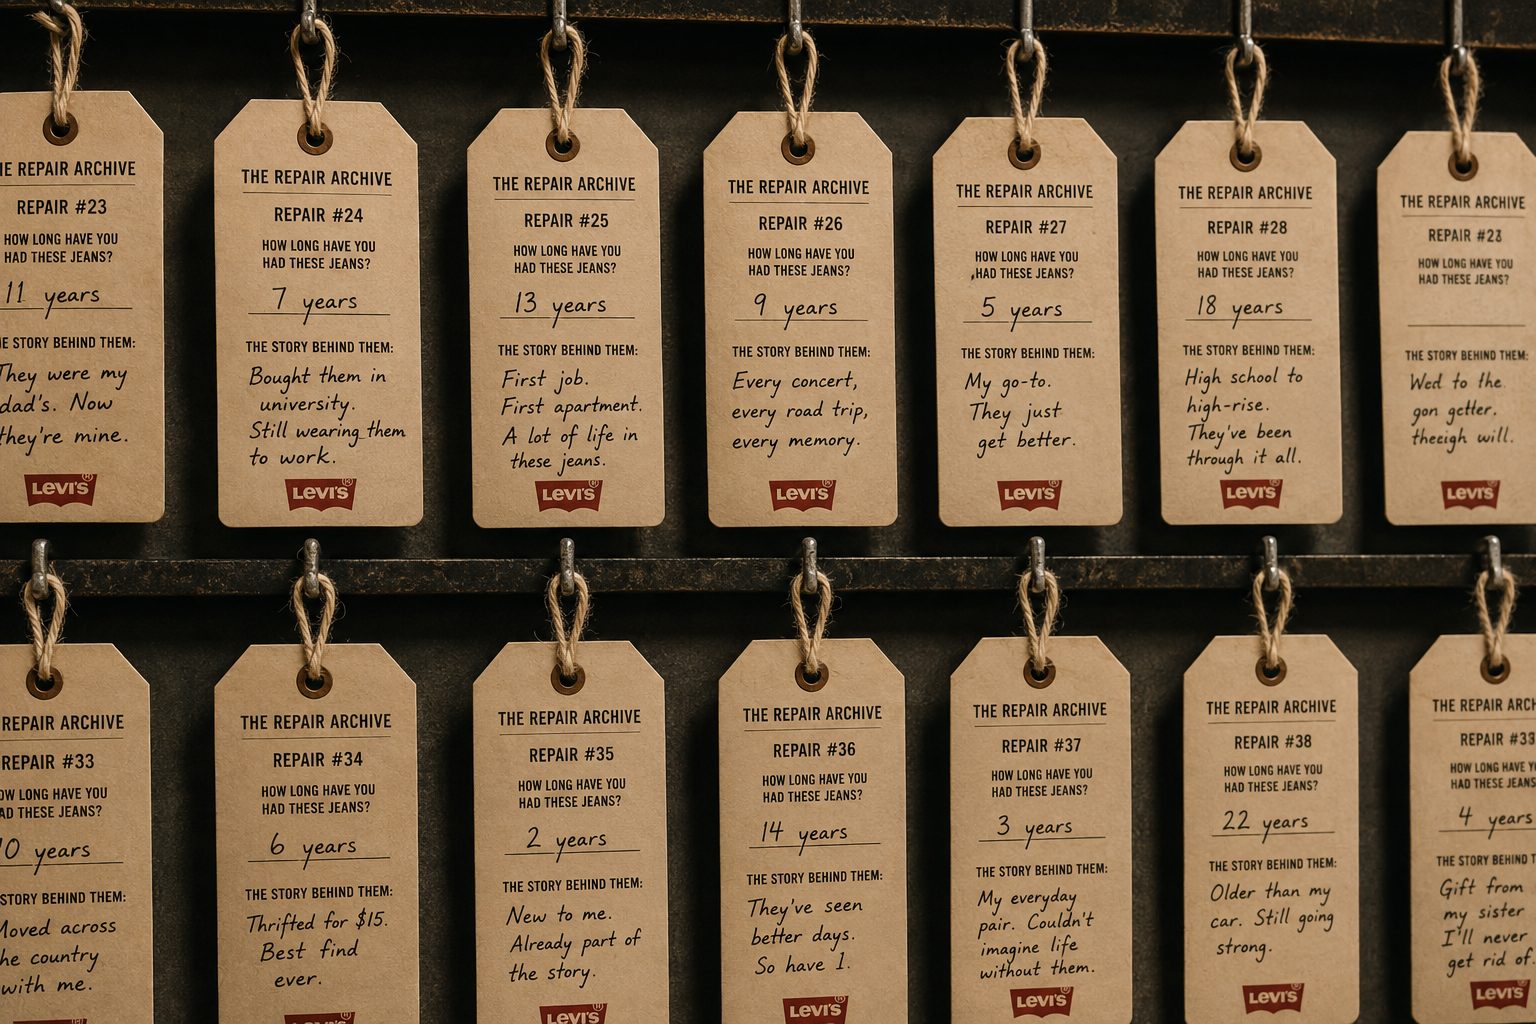 THE REPAIR ARCHIVE
REPAIR #23
HOW LONG HAVE YOU
HAD THESE JEANS?
11 years
THE STORY BEHIND THEM:
They were my
dad's. Now
they're mine.
LEVI'S®
THE REPAIR ARCHIVE
REPAIR #24
HOW LONG HAVE YOU
HAD THESE JEANS?
7 years
THE STORY BEHIND THEM:
Bought them in
university.
Still wearing them
to work.
LEVI'S®
THE REPAIR ARCHIVE
REPAIR #25
HOW LONG HAVE YOU
HAD THESE JEANS?
13 years
THE STORY BEHIND THEM:
First job.
First apartment.
A lot of life in
these jeans.
LEVI'S®
THE REPAIR ARCHIVE
REPAIR #26
HOW LONG HAVE YOU
HAD THESE JEANS?
9 years
THE STORY BEHIND THEM:
Every concert,
every road trip,
every memory.
LEVI'S®
THE REPAIR ARCHIVE
REPAIR #27
HOW LONG HAVE YOU
HAD THESE JEANS?
5 years
THE STORY BEHIND THEM:
My go-to.
They just
get better.
LEVI'S®
THE REPAIR ARCHIVE
REPAIR #28
HOW LONG HAVE YOU
HAD THESE JEANS?
18 years
THE STORY BEHIND THEM:
High school to
high-rise.
They've been
through it all.
LEVI'S®
THE REPAIR ARCHIVE
REPAIR
HOW LONG HAVE YOU
HAD THESE JEANS?
THE STORY BEHIND THEM:
to the
will.
LEVI'S
REPAIR ARCHIVE
REPAIR #33
HOW LONG HAVE YOU
HAD THESE JEANS?
10 years
STORY BEHIND THEM:
Moved across
the country
with me.
THE REPAIR ARCHIVE
REPAIR #34
HOW LONG HAVE YOU
HAD THESE JEANS?
6 years
THE STORY BEHIND THEM:
Thrifted for $15.
Best find
ever.
LEVI'S®
THE REPAIR ARCHIVE
REPAIR #35
HOW LONG HAVE YOU
HAD THESE JEANS?
2 years
THE STORY BEHIND THEM:
New to me.
Already part of
the story.
LEVI'S®
THE REPAIR ARCHIVE
REPAIR #36
HOW LONG HAVE YOU
HAD THESE JEANS?
14 years
THE STORY BEHIND THEM:
They've seen
better days.
So have I.
LEVI'S®
THE REPAIR ARCHIVE
REPAIR #37
HOW LONG HAVE YOU
HAD THESE JEANS?
3 years
THE STORY BEHIND THEM:
My everyday
pair. Couldn't
imagine life
without them.
LEVI'S®
THE REPAIR ARCHIVE
REPAIR #38
HOW LONG HAVE YOU
HAD THESE JEANS?
22 years
THE STORY BEHIND THEM:
Older than my
car. Still going
strong.
LEVI'S®
THE REPAIR
REPAIR
HOW LONG HAVE
HAD THESE JEANS
4 years
THE STORY BEHIND
Gift from
my sister
I'll never
get rid of.
LEVI'S